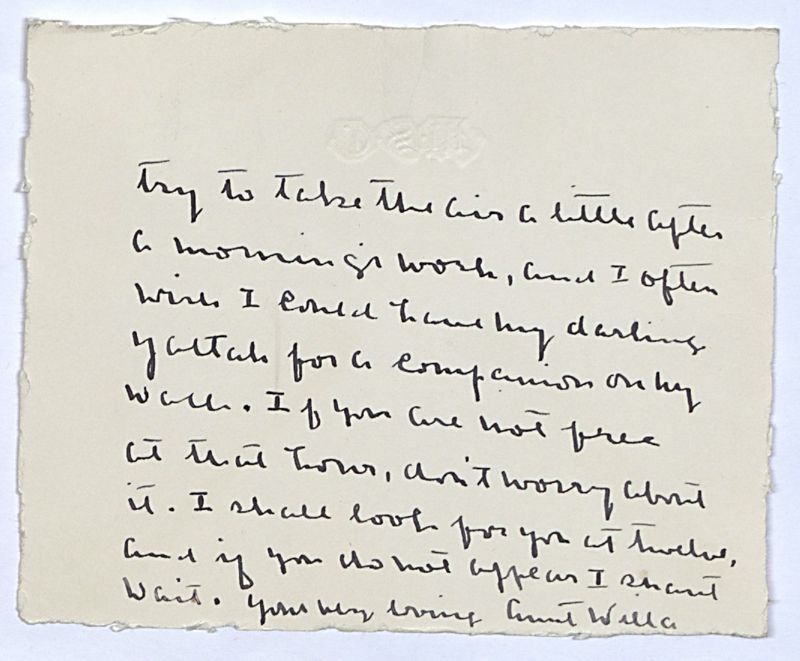 try to take the air a little after
a morning's work, and I often
wish I could have my darling
Yaltah for a companion on my
walk. If you are not free
at that hour, don't worry about
it. I shall look for you at twelve,
and if you do not appear I shant
wait. Your very loving Aunt Willa